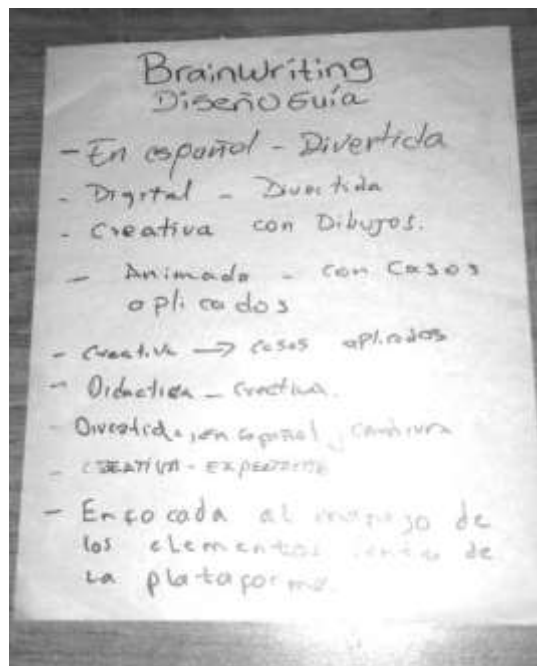 Brainwriting
Diseño Guía
- En español - Divertida
- Digital - Divertida
- Creativa con Dibujos.
- Animado - con Casos
aplicados
- Creativa → casos aplicados
- Didactica - Creativa.
- Divertida, en español,
- CREATIVA -
- Enfocada al manejo de
los elementos dentro de
La plataforma.